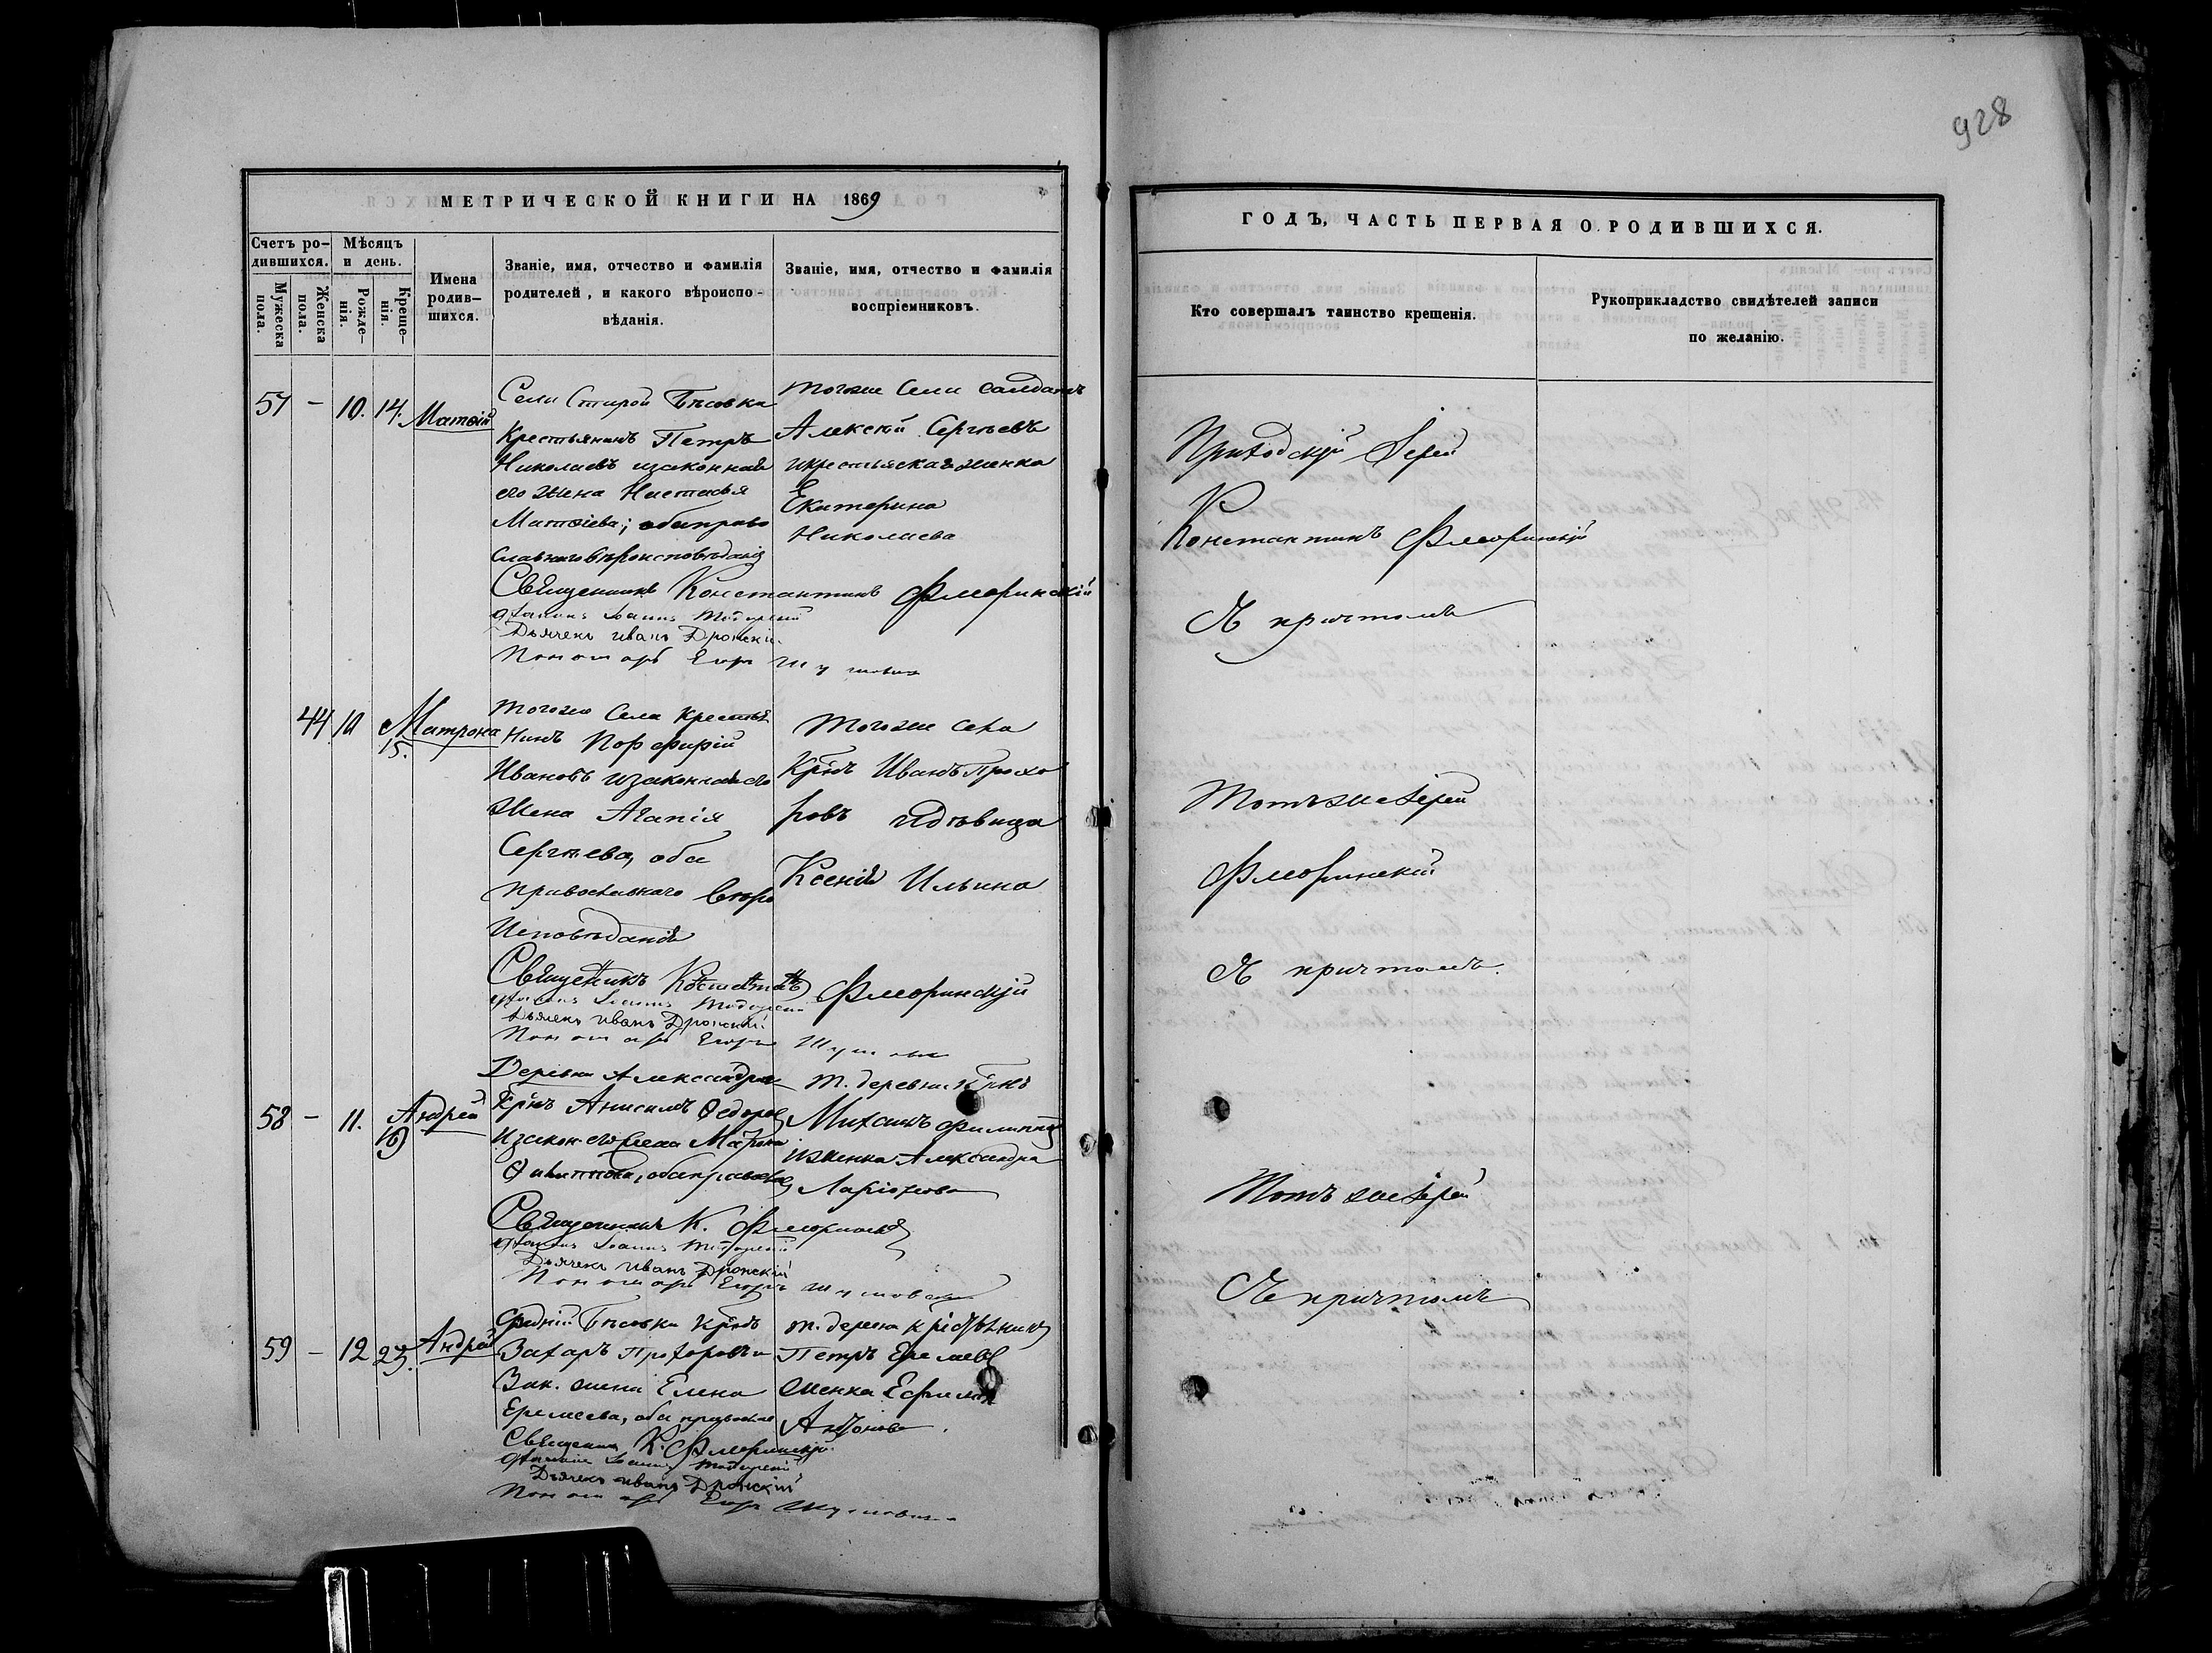 928
МЕТРИЧЕСКОЙ КНИГИ НА 1869
ГОДЪ, ЧАСТЬ ПЕРВАЯ О РОДИВШИХСЯ.
Счетъ ро-
дившихся.
Мужеска
пола.
Женска
пола.
Мѣсяцъ
и день.
Рожде-
нія.
Креще-
нія.
Имена
родив-
шихся.
Званіе, имя, отчество и фамилія
родителей, и какого вѣроиспо-
вѣданія.
Званіе, имя, отчество и фамилія
воспріемниковъ.
Кто совершалъ таинство крещенія.
Рукоприкладство свидѣтелей записи
по желанію.
57 - 10. 14. Матѳій
Села Старой
Крестьянинъ Петръ
Николаевъ изаконная
его жена Настасья
Матѳіева; обаправо
славнаго вѣроисповѣданія
Священникъ Константинъ Флоринскій
Дьячекъ Иванъ Дронскій
Пономарь Егоръ
тогоже Села салдатъ
Алексѣй Сергѣевъ
икрестьяскаяженка
Екатерина
Николаева
Приходскій Іерей
Константинъ Флоринскій
Съ причтомъ
44 10 15. Матрона
тогоже Села Крестья
нинъ Порфирій
Ивановъ изаконная его
жена Агапія
Сергѣева, оба
православнаго вѣро
исповѣданія
Священикъ Флоринскій
Дьячекъ Иванъ Дронскій
Пономарь Егоръ
тогоже села
Крнъ Иванъ Прохо
ровъ идѣвица
Ксенія Ильина
Тотъже Іерей
Флоринскій
Съ причтомъ.
58 - 11. 19 Андрей
Деревни
Крнъ Анисимъ Ѳедоровъ
изакон его жена
Филиппова, обаправосла
Священникъ К. Флоринскій
Дьячекъ Иванъ Дронскій
Пономарь Егоръ
т. деревни
Михаилъ Филипповъ
иженка Александра
Ларіонова
Тотъ же Іерей
Съ причтомъ
59 - 12 23. Андрей
Средній
Захаръ Прохоровъ и
Зак. жена Елена
Еремеева, оба правосла
Священникъ К. Флоринскій
Дьячекъ Иванъ Дронскій
Пономарь Егоръ
Петръ Еремеев
женка
Антонова.